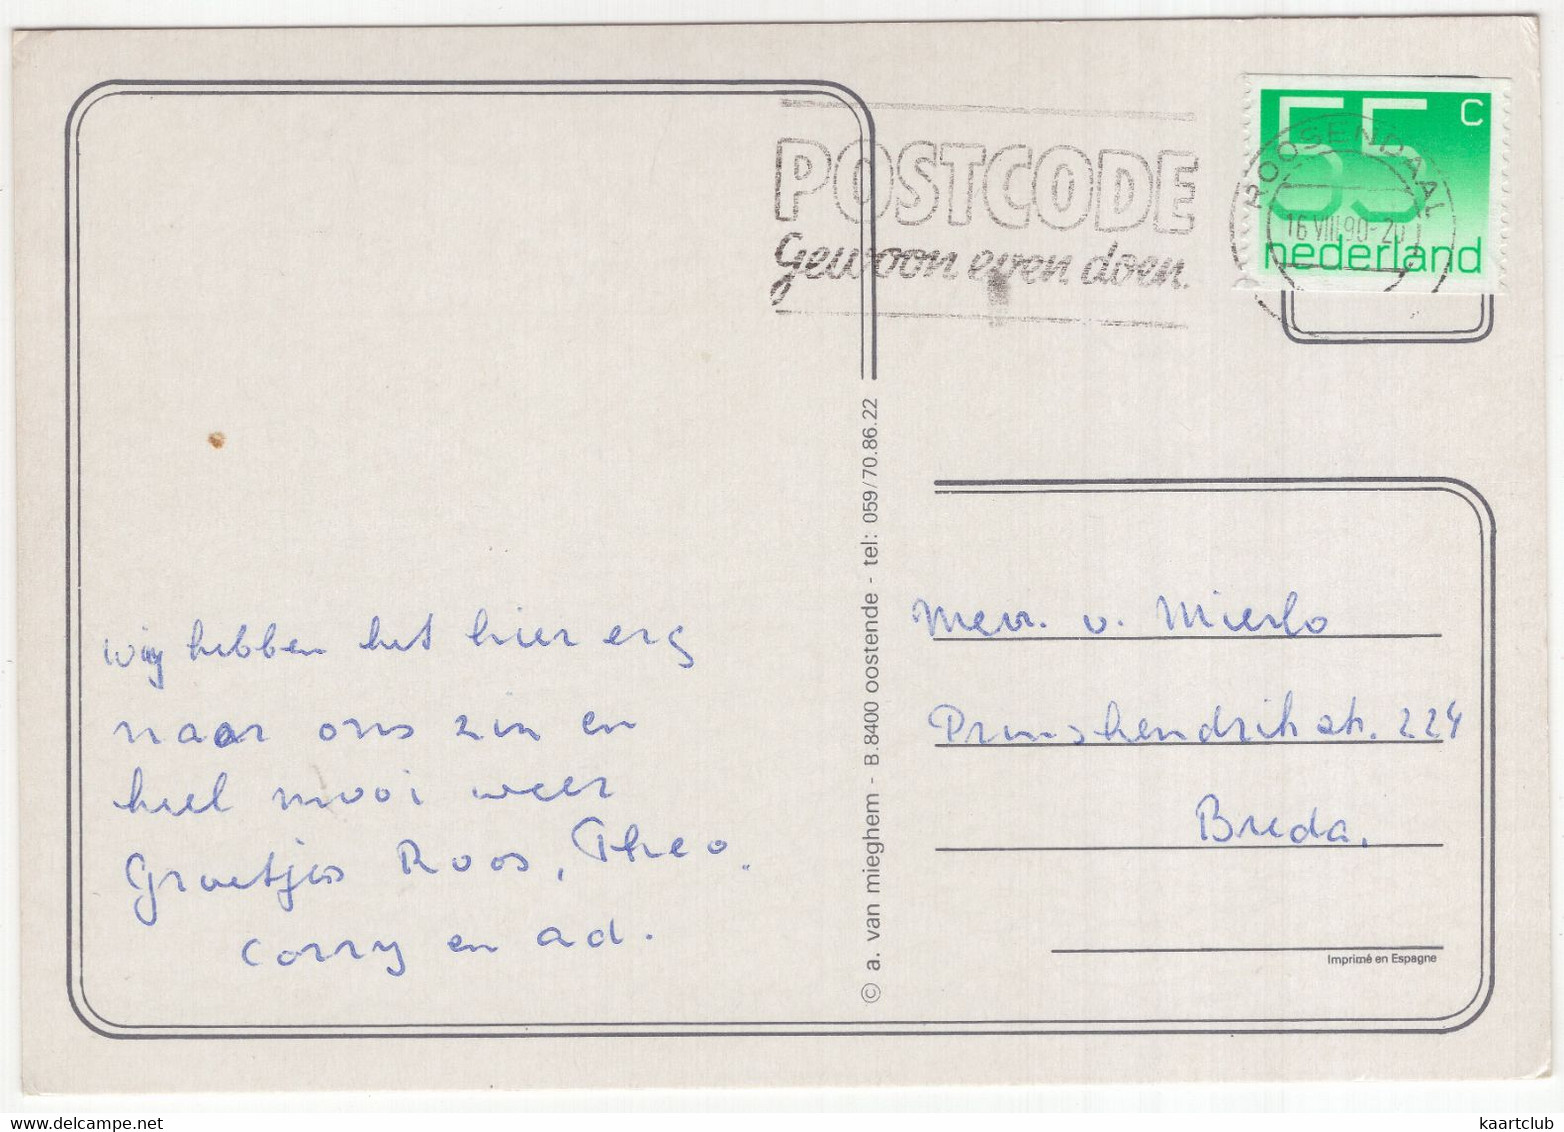 POSTCODE
gewoon even doen.
55 c
nederland
ROOSENDAAL
16 VIII.90-20
wij hebben het hier erg
naar ons zin en
heel mooi weer
Groetjes Roos, Theo.
Corry en ad.
© a. van mieghem - B.8400 oostende - tel: 059/70.86.22
Mevr. v. Mierlo
Prinshendrikstr. 224
Breda.
Imprimé en Espagne
www.delcampe.net
kaartclub